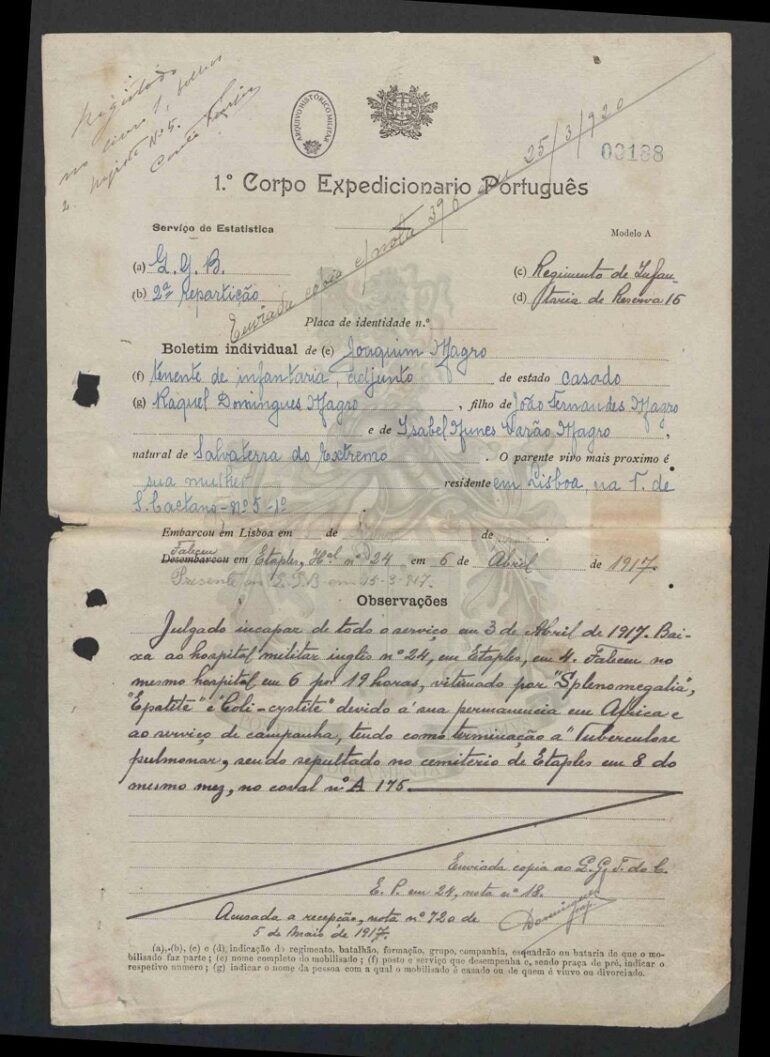 Registado
no livro 1, folhas
2, registo Nº 5.
ARQUIVO HISTÓRICO MILITAR
Enviada copia c/ nota 390 em 25/3/920
00188
1.º Corpo Expedicionario Português
Serviço de Estatistica
Modelo A
(a) Q. G. B.
(c) Regimento de Infan-
(b) 2ª repartição
(d) taria de Reserva 16
Placa de identidade n.º
Boletim individual de (e) Joaquim Magro
(f) tenente de infantaria, adjunto de estado casado
(g) Raquel Domingues Magro, filho de João Fernandes Magro
e de Isabel Nunes Varão Magro,
natural de Salvaterra do Extremo. O parente vivo mais proximo é
sua mulher residente em Lisboa, na T. de
S. Caetano - Nº 5 - 1º
Embarcou em Lisboa em de de
Faleceu
Desembarcou em Etaples, Hal nº 24 em 6 de Abril de 1917.
Presente no Q.G.B em 15-3-917.
Observações
Julgado incapaz de todo o serviço em 3 de Abril de 1917. Bai-
xa ao hospital militar inglês nº 24, em Etaples, em 4. Faleceu no
mesmo hospital em 6 por 19 horas, vitimado por "Splenomegalia",
"Epatite" e "Coli-cystite" devido á sua permanencia em Africa e
ao serviço de campanha, tendo como terminação a "Tuberculose
pulmonar", sendo sepultado no cemiterio de Etaples em 8 do
mesmo mez, no coval nº A 175.
Enviada copia ao Q. G. T. do C.
E. P. em 24, nota nº 18.
Acusada a recepção, nota nº 720 de
5 de Maio de 1917.
Domingues
(a), (b), (c) e (d) indicação do regimento, batalhão, formação, grupo, companhia, esquadrão ou bataria de que o mo-
bilisado faz parte; (e) nome completo do mobilisado; (f) posto e serviço que desempenha e, sendo praça de pré, indicar o
respetivo numero; (g) indicar o nome da pessoa com a qual o mobilisado é casado ou de quem é viuvo ou divorciado.